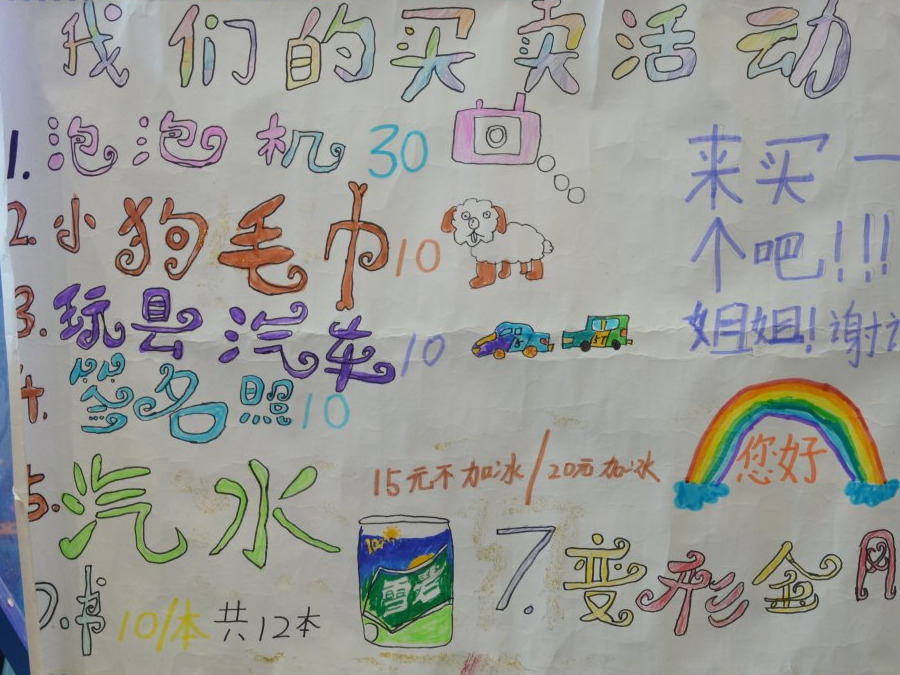 我们的买卖活动
1.泡泡机 30
2.小狗毛巾 10
3.玩具汽车 10
4.签名照 10
5.汽水 15元不加冰/20元加冰
书 10/本 共12本
雪碧
7.变形金
来买一
个吧!!!
姐姐!谢
您好